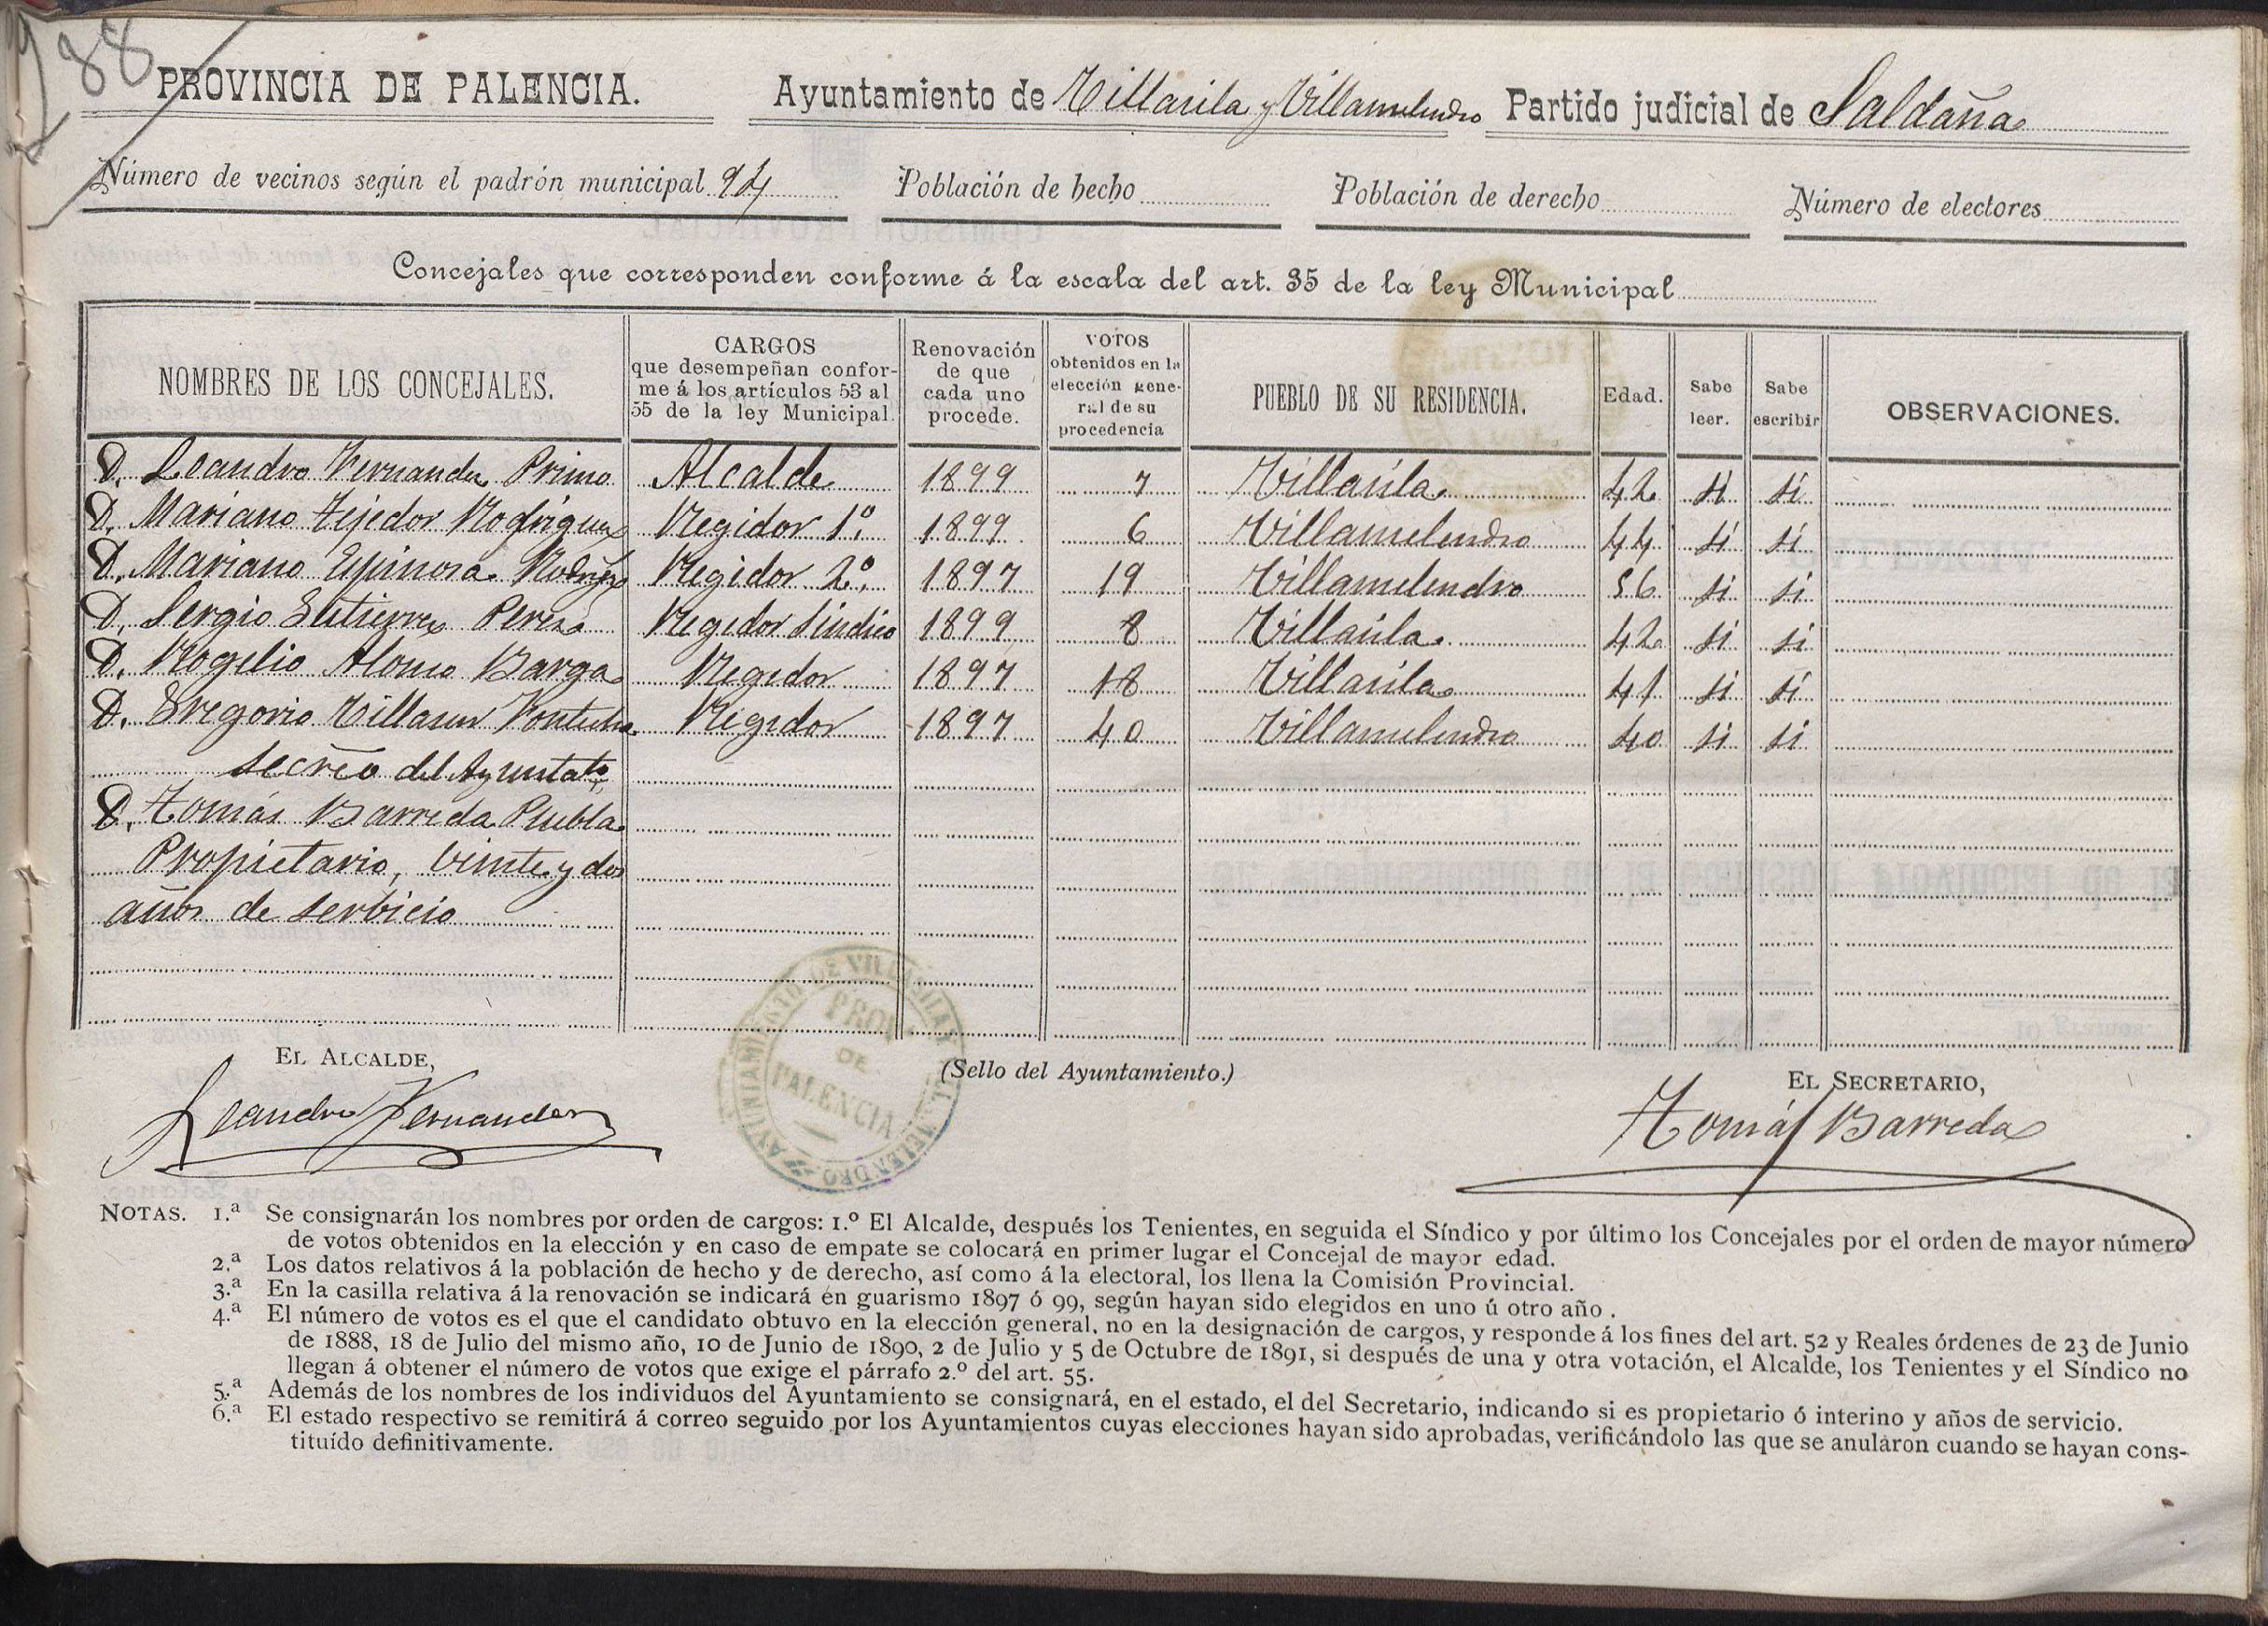 988
PROVINCIA DE PALENCIA. Ayuntamiento de Villasila y Villamelendro Partido judicial de Saldaña
Número de vecinos según el padrón municipal 94 Población de hecho Población de derecho Número de electores
Concejales que corresponden conforme á la escala del art. 35 de la ley Municipal
NOMBRES DE LOS CONCEJALES.
CARGOS
que desempeñan confor-
me á los artículos 53 al
55 de la ley Municipal.
Renovación
de que
cada uno
procede.
VOTOS
obtenidos en la
elección gene-
ral de su
procedencia
PUEBLO DE SU RESIDENCIA.
Edad.
Sabe
leer.
Sabe
escribir
OBSERVACIONES.
D. Leandro Fernandez Primo Alcalde 1899 7 Villasila 42 si si
D. Mariano Tejedor Rodriguez Regidor 1º 1899 6 Villamelendro 44 si si
D. Mariano Espinosa Rodrigz Regidor 2º 1897 19 Villamelendro 56 si si
D. Sergio Gutierrez Perez Regidor Sindico 1899 8 Villasila 42 si si
D. Rogelio Alonso Barga Regidor 1897 18 Villasila 41 si si
D. Gregorio Villasur Regidor 1897 40 Villamelendro 40 si si
secreo del Ayuntato
D. Tomás Barreda Puebla
Propietario, veinte y dos
años de servicio
EL ALCALDE,
Leandro Fernandez
(Sello del Ayuntamiento.)
AYUNTAMIENTO DE VILLASILA Y VILLAMELENDRO
PROV.
DE
PALENCIA
EL SECRETARIO,
Tomás Barreda
NOTAS. 1.ª Se consignarán los nombres por orden de cargos: 1.º El Alcalde, después los Tenientes, en seguida el Síndico y por último los Concejales por el orden de mayor número
de votos obtenidos en la elección y en caso de empate se colocará en primer lugar el Concejal de mayor edad.
2.ª Los datos relativos á la población de hecho y de derecho, así como á la electoral, los llena la Comisión Provincial.
3.ª En la casilla relativa á la renovación se indicará en guarismo 1897 ó 99, según hayan sido elegidos en uno ú otro año.
4.ª El número de votos es el que el candidato obtuvo en la elección general, no en la designación de cargos, y responde á los fines del art. 52 y Reales órdenes de 23 de Junio
de 1888, 18 de Julio del mismo año, 10 de Junio de 1890, 2 de Julio y 5 de Octubre de 1891, si después de una y otra votación, el Alcalde, los Tenientes y el Síndico no
llegan á obtener el número de votos que exige el párrafo 2.º del art. 55.
5.ª Además de los nombres de los individuos del Ayuntamiento se consignará, en el estado, el del Secretario, indicando si es propietario ó interino y años de servicio.
6.ª El estado respectivo se remitirá á correo seguido por los Ayuntamientos cuyas elecciones hayan sido aprobadas, verificándolo las que se anularon cuando se hayan cons-
tituído definitivamente.